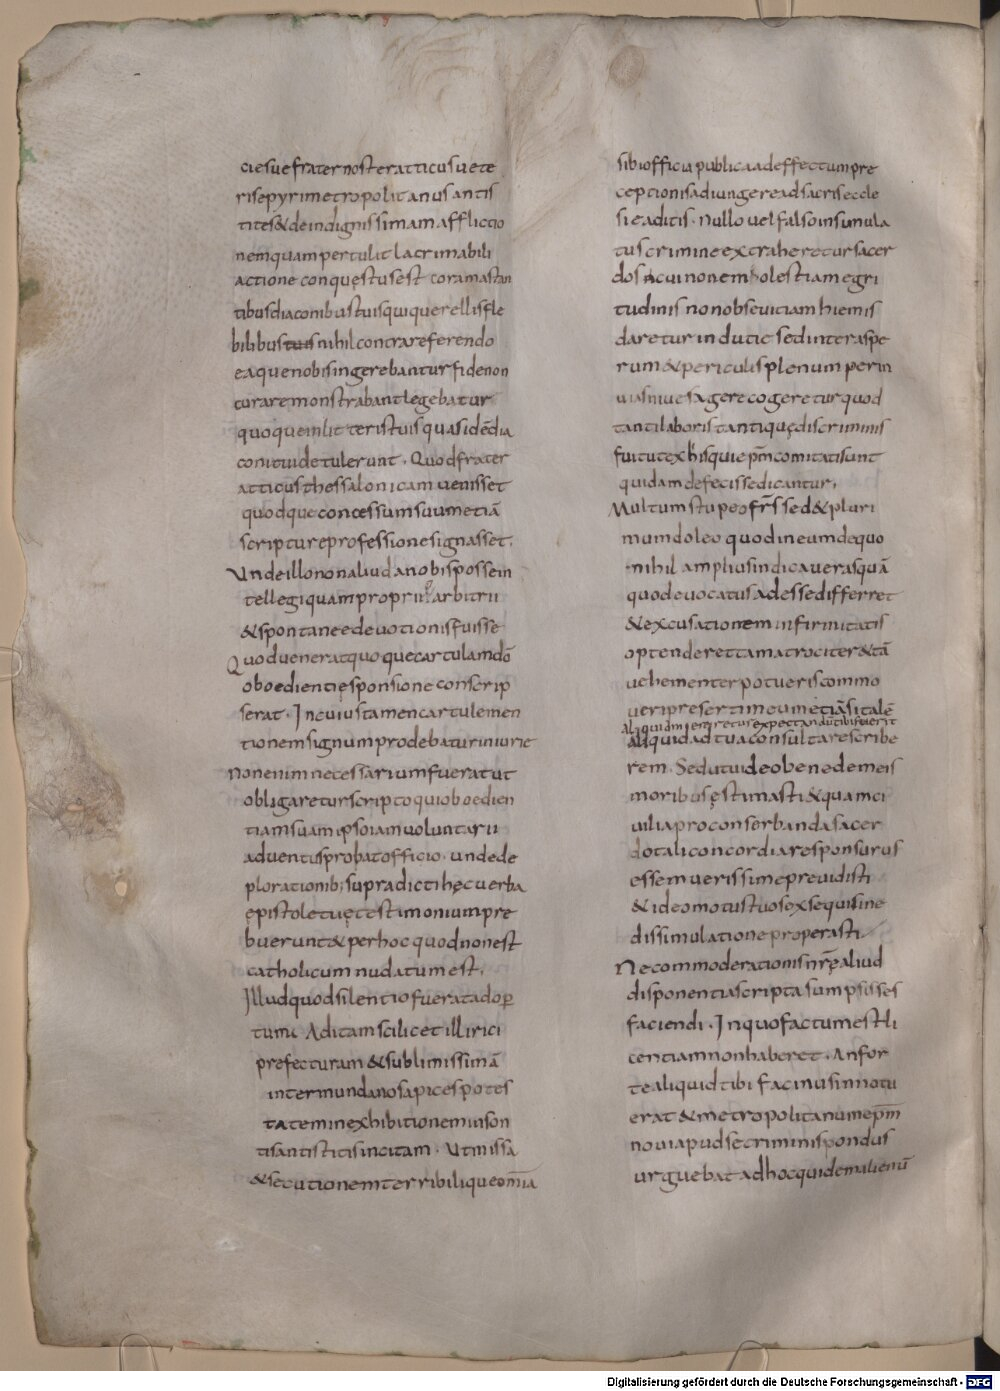 ciesuefraternosteratticusuete
risepyrimetropolitanusantis
tites&deindignissimamafflictio
nemquampertulitlacrimabili
actioneconquęstusest coramastan
tibusdiaconibustuisquiquerellisfle
bilibustuisnihilcontrareferendo
eaquenobisingerebanturfidenon
curaremonstrabantlegebatur
quoqueinlitteristuisquasidēdia
conituidetulerunt. Quodfrater
atticusthessalonicamuenisset
quodqueconcessumsuumetiā
scriptureprofessionesignasset.
Undeillononaliudanobispossein
tellegiquampropriiarbitrii
&spontaneedeuotionisfuisse
Quodueneratquoquecartulamdō
oboedientięsponsioneconscrip
serat. Incuiustamencartulemen
tionemsignumprodebaturiniurie
Nonenimnecessariumfueratut
obligareturscriptoquioboedien
tiamsuamipsoiamuoluntarii
aduentusprobatofficio. undede
plorationib;supradictihęcuerba
epistoletuętestimoniumpre
buerunt&perhocquodnonest
catholicumnudatumest.
Illudquodsilentiofueratadop
tum. Aditamscilicetillirici
prefecturam&sublimissimā
intermundanosapicespotes
tateminexhibitioneminson
tisantistitisincitam. Utmissa
&secutioneterribiliqueom̄ia
sibiofficiapublicaadeffectumpre
ceptionisadiungereadsacriseccle
sieaditis. Nullouelfalsoinsimula
tuscrimineextraheretursacer
doscuinonemolestiamegri
tudinis nonobseuitiamhiemis
daretur indutie sedinteraspe
rum&periculisplenumperin
uiasniuesagerecogereturquod
tantilaboristantiquędiscriminis
fuitutexhisquiep̄mcomitatisunt
quidamdefecissedicantur.
Multumstupeofr̄ssed&pluri
mumdoleo quodineumdequo
nihil ampliusindicauerasquā
quodeuocatusadessedifferret
&excusationeminfirmitatis
optenderettamatrociter&tā
uehementerpotueriscommo
ueripresertimcumetiāsitalē
aliquidadtuaconsultarescribe
rem. Sedutuideobenedemeis
moribusęstimasti&quamci
uiliaproconserbandasacer
dotaliconcordiaresponsurus
essemuerissimepreuidisti
&ideomotustuosexsequisine
dissimulationeproperasti
Necommoderationisnr̄ęaliud
disponentiascriptasumpsisses
faciendi. Inquofactumestli
centiamnonhaberet. Anfor
tealiquidtibifacinusinnotu
erat&metropolitanumep̄m
nouiapudsecriminispondus
urguebatadhocquidemalienū